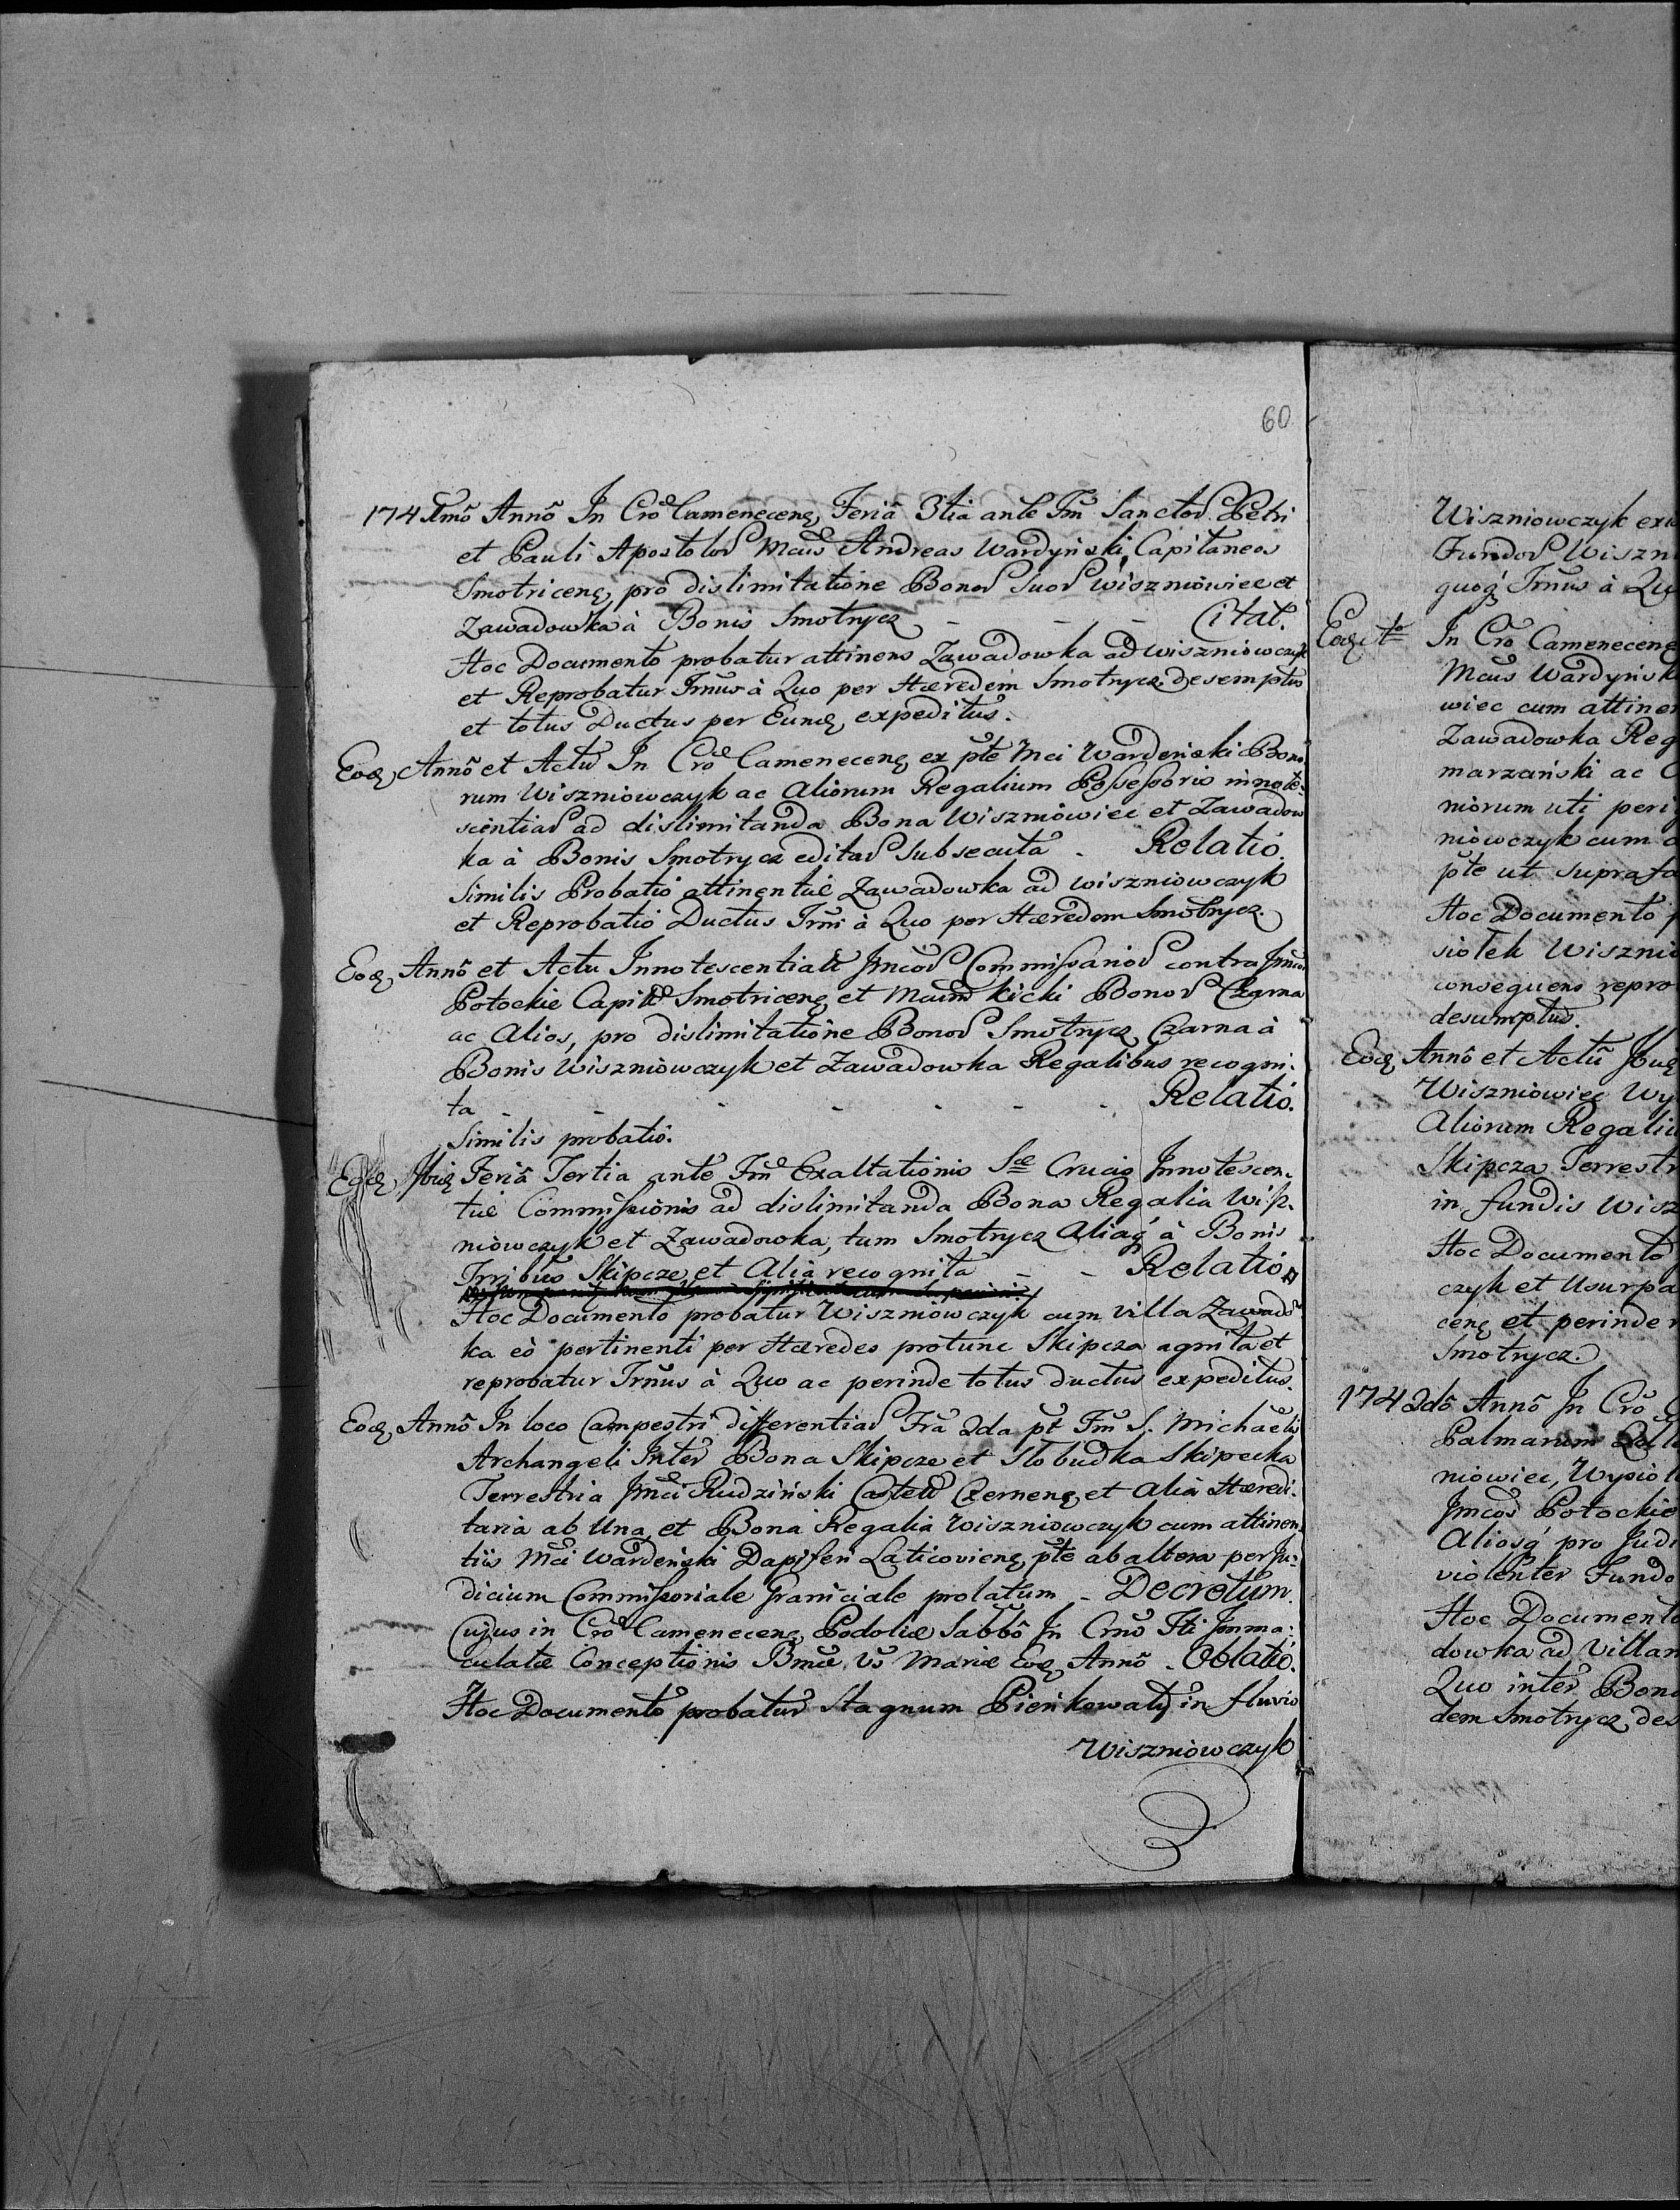 60
1741mō Annō In Crō Camenecenę, Feriâ 3tia ante Fm̃ Sanctor Petri
et Pauli Apostolor Mcus Andreas Wardyński Capitaneos
Smotricenę, pro dislimitatione Bonor Suor Wiszniòwiec et
Zawadowka à Bonis Smotrycz - - - Citat.
Hoc Documento probatur attinens Zawadowka ad Wiszniòwczyk
et Reprobatur Trn̄us à Quo per Hæredem Smotrycz desemptus
et totus Ductus per Eundę, expeditus.
Eodę, Annô et Actu In Crō Camenecenę ex pte Mci Wardeński Bono-
rum Wiszniòwczyk ac Aliorum Regalium Possessoris innote-
scentiar ad dislimitanda Bona Wiszniòwiec et Zawadow
ka à Bonis Smotrycz editar Subsecuta - Relatio.
Similis Probatio attinentiæ Zawadowka ad Wiszniòwczyk
et Reprobatio Ductus Trn̄i à Quo per Hæredem Smotrycz.
Eodę, Annô et Actu Innotescentiale Jmcor Commissarior contra Jmcor
Potockie Capit Smotricenę et Mcum Kicki Bonor Czarna
ac Alios, pro dislimitatione Bonor Smotrycz Czarna à
Bonis Wiszniòwczyk et Zawadowka Regalibus recogni-
ta - - - - - - Relatio.
Similis probatio.
Eodę, Ibidę Feriâ Tertia ante Fm̃ Exaltationis Sæ Crucis Innotescen-
tiæ Commissionis ad dislimitanda Bona Regalia Wisz-
niòwczyk et Zawadowka, tum Smotrycz Aliaq́ à Bonis
Trribus Skipcze et Alia recognita - - Relatio
Hoc Documento probatur Wiszniòwczyk cum villa Zawadō
ka eò pertinenti per Hæredes protunc Skipcza agnita et
reprobatur Trn̄us à Quo ac perinde totus ductus expeditus.
Eodę, Annô In loco Campestri differentiar Fra 2da pt Fm̃ S. Michaëlis
Archangeli Inter Bona Skipcze et Słobudka Skipecka
Terrestria Jmci Rudziński Castell Czernenę, et Alia Hæredi-
taria ab Una et Bona Regalia Wiszniòwczyk cum attinen-
tiis Mci Wardeński Dapiferi Laticovienę, pte ab altera per Ju-
dicium Commissoriale Graniciale prolatum - Decretum.
Cujus in Crō Camenecenę Podoliæ Sabbō In Crnō Fti Imma-
culatæ Conceptionis Bmæ Vs Mariæ Eodę Annô - Oblatio.
Hoc Documento probatur Stagnum Pieńkowaty in fluvio
Wiszniòwczyk
Wiszniowczyk
Fundor Wiszn
quoq́ Trn̄us à Qu
Eodę In Crō Camenecenę
Mcus Wardyńsk
wiec cum attinen
Zawadowka Reg
marzański ac
niorum uti peri
niòwczyk cum a
pte ut supra fa
Hoc Documento p
siołek Wisznio
consequens repro
desumptus.
Eodę Annô et Actu Ibidę
Wiszniòwiec Wy
Aliorum Regaliu
Skipcza Terrestr
in fundis Wisz
Hoc Documento
czyk et Usurpa
cenę et perinde r
Smotrycz.
1742dō Annô In Crō C
Palmarum
niòwiec, Wysioł
Jmcos Potockie
Aliosq́ pro Judi
violenter Fundo
Hoc Documento
dowka ad Villam
Quo inter Bona
dem Smotrycz des